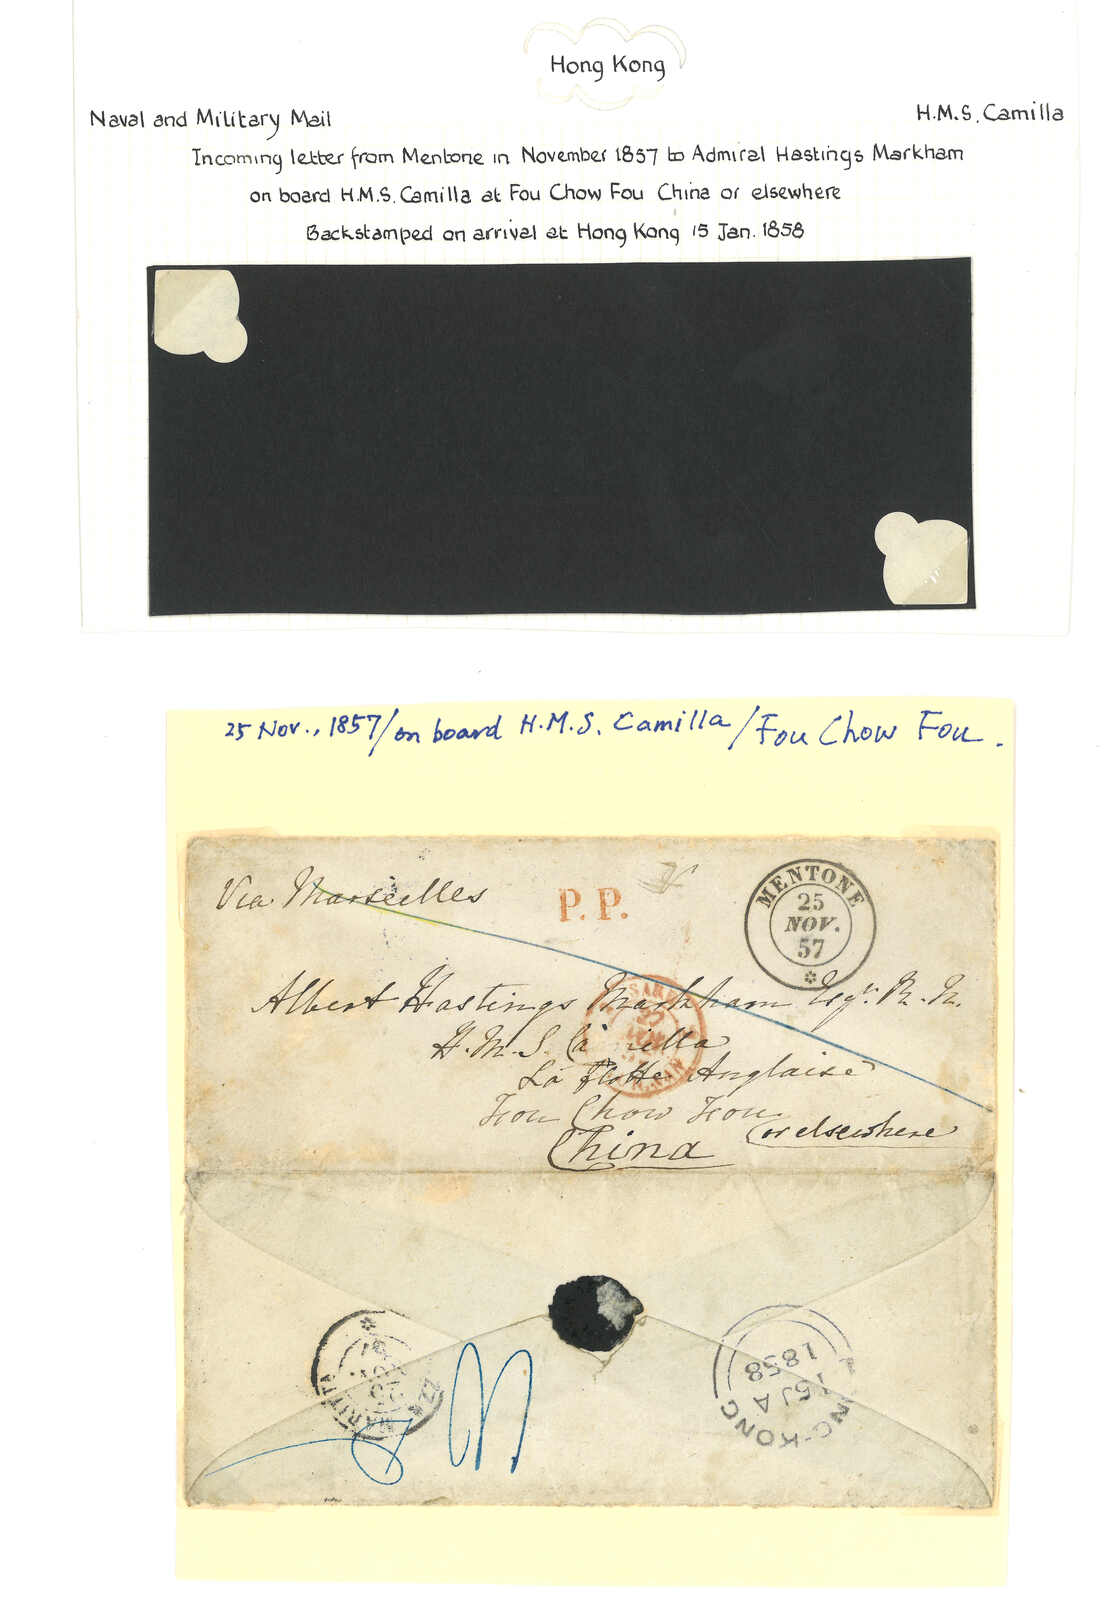 Hong Kong
Naval and Military Mail
H.M.S. Camilla
Incoming letter from Mentone in November 1857 to Admiral Hastings Markham
on board H.M.S. Camilla at Fou Chow Fou China or elsewhere
Backstamped on arrival at Hong Kong 15 Jan. 1858
25 Nov., 1857/on board H.M.S. Camilla/Fou Chow Fou.
Via Marseilles
P.P.
MENTONE
25
NOV.
57
Albert Hastings Markham Esqr. R.N.
H.M.S. Camilla
La Flotte Anglaise
Fou Chow Fou
China
or elsewhere
HONG-KONG
15 JA
1858